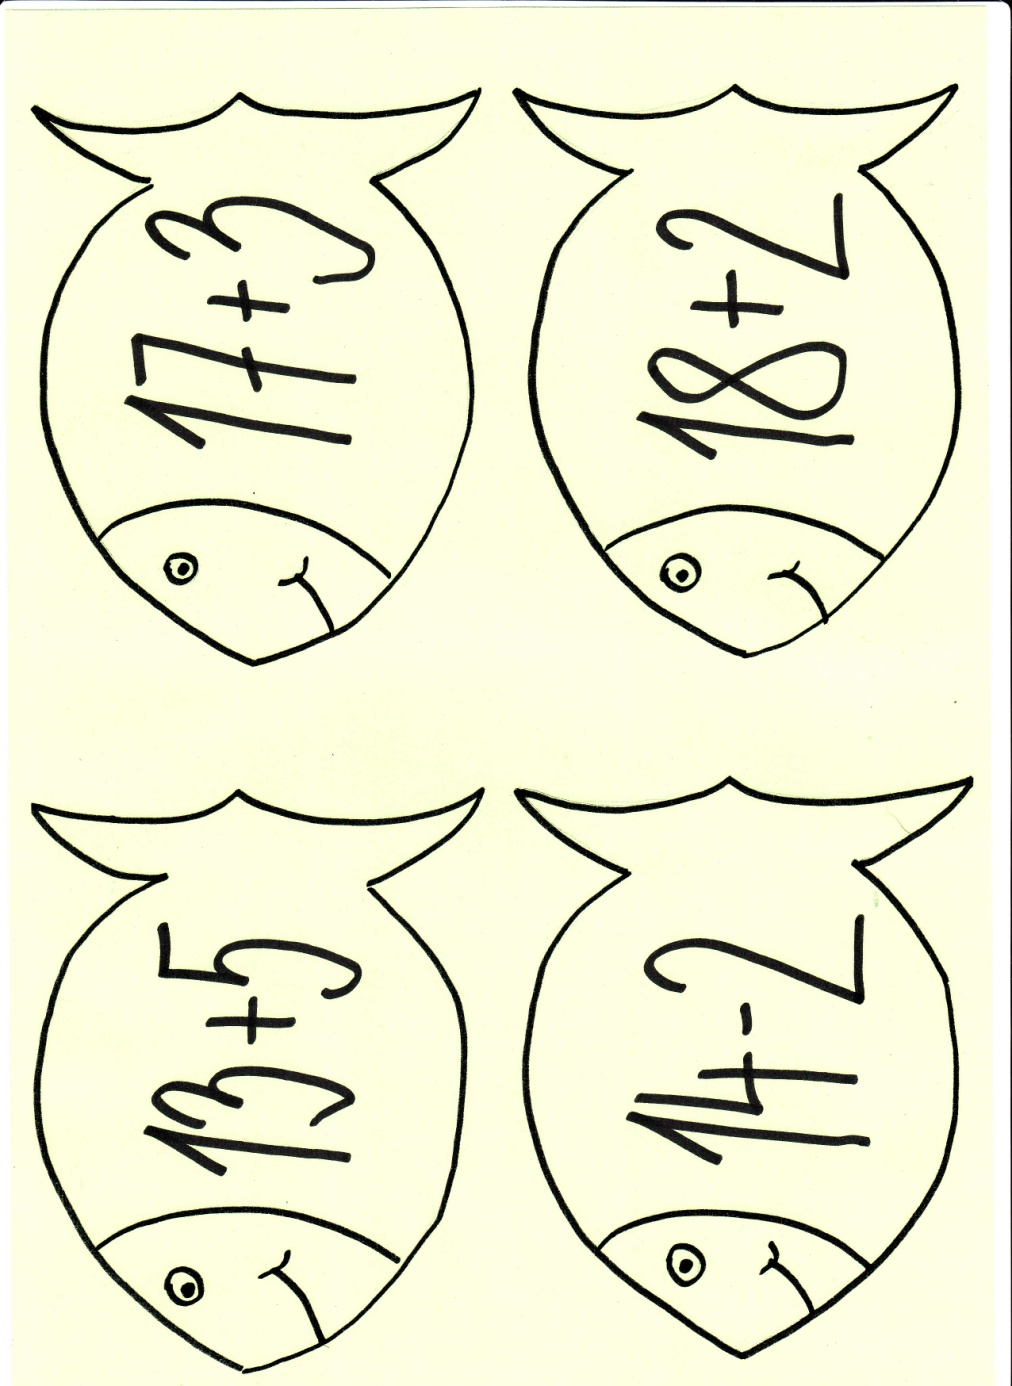 17+3
18+2
13+5
14-2